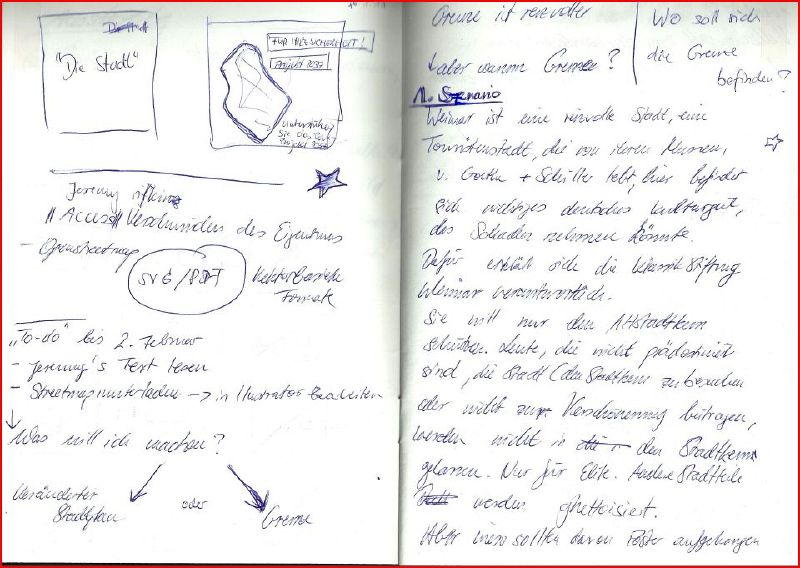 "Die Stadt"
FÜR IHRE SICHERHEIT!
Projekt 2037
Unterstützen
Sie das
Projekt 2037
Jeremy Rifkin
"Access" Verschwinden des Eigentums
- Openstreetmap
SVG/PDF
Vektorbasierte
Formate
„To-do" bis 2. Februar
- Jeremy's Text lesen
- Streetmap runterladen -> in Illustrator Bearbeiten
↓
Was will ich machen?
Veränderter
Stadtplan
oder
Grenze
Grenze ist reizvoller
aber warum Grenze?
Wo soll sich
die Grenze
befinden?
1. Szenario
Weimar ist eine reizvolle Stadt, eine
Touristenstadt, die von ihren Museen,
v. Goethe + Schiller lebt, hier befindet
sich wichtiges deutsches Kulturgut,
das Schaden nehmen könnte.
Dafür erklärt sich die Klassik Stiftung
Weimar verantwortlich.
Sie will nur den Altstadtkern
schützen. Leute, die nicht prädestiniert
sind, die Stadt (den Stadtkern zu besuchen
oder nicht zur Verschönerung beitragen,
werden nicht in den Stadtkern
gelassen. Nur für Elite. Andere Stadtteile
werden ghettoisiert.
Aber wieso sollten davon Poster aufgehangen